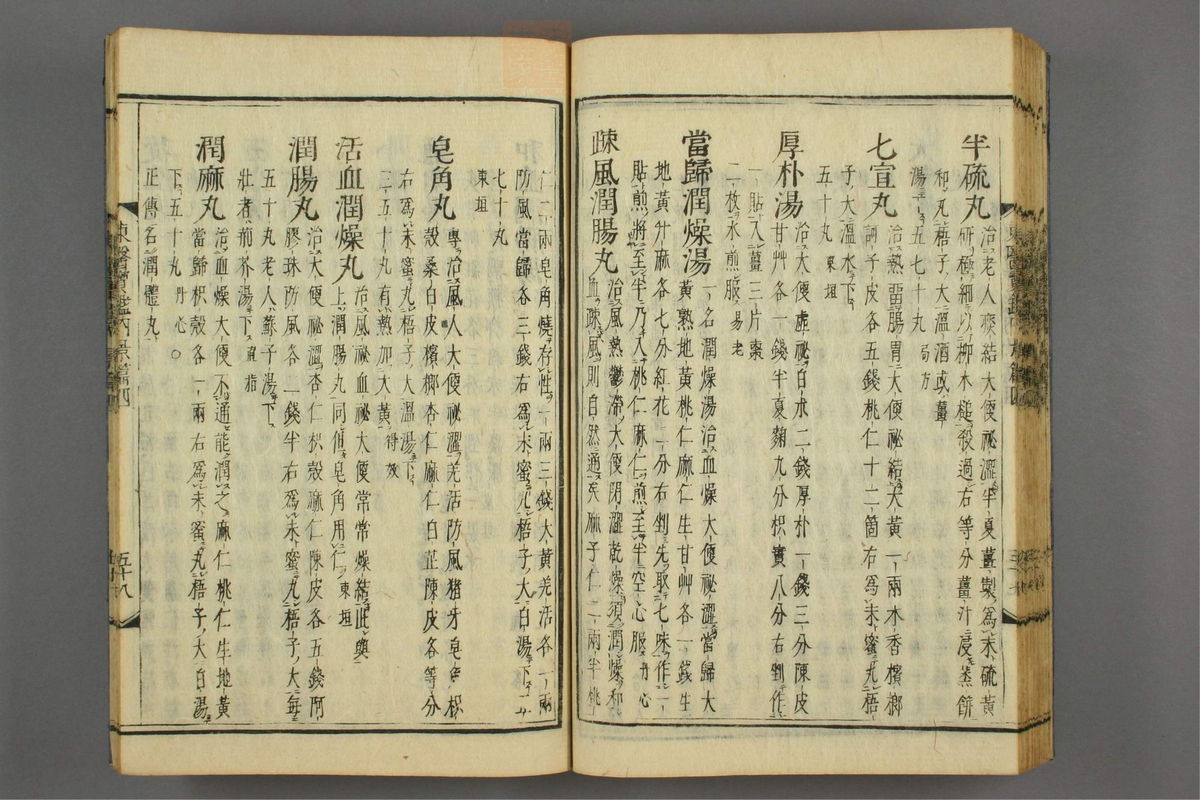 半硫丸治老人秘結大便祕澀半夏薑製爲末硫黃
研極細以柳木槌殺過右等分薑汁浸蒸餠
和丸梧子大溫酒或薑
湯下五七十丸局方
七宣丸治熱留腸胃大便祕結大黃一兩木香檳榔
訶子皮各五錢桃仁十二箇右爲末蜜丸梧
子大溫水下
五十丸東垣
厚朴湯治大便虛祕白朮二錢厚朴一錢三分陳皮
甘艸各一錢半夏麴九分枳實八分右剉作
一貼入薑三片棗
二枚水煎服易老
當歸潤燥湯一名潤燥湯治血燥大便祕澀當歸大
黃熟地黃桃仁麻仁生甘艸各一錢生
地黃升麻各七分紅花二分右剉先取七味作一
貼煎將至半乃入桃仁麻仁煎至半空心服丹心
疎風潤腸丸治風熱鬱滯大便閉澀乾燥須潤燥和
血疎風則自然通矣麻子仁二兩半桃
仁二兩皂角燒存性一兩三錢大黃羌活各一兩
防風當歸各三錢右爲末蜜丸梧子大白湯下五
七十丸
東垣
皂角丸專治風人大便祕澀羌活防風猪牙皂角枳
殼桑白皮檳榔杏仁麻仁白芷陳皮各等分
右爲末蜜丸梧子大溫湯下
三五十丸有熱加大黃得效
活血潤燥丸治風祕血祕大便常常燥結此與
上潤腸丸同但皂角用仁東垣
潤腸丸治大便祕澀杏仁枳殼麻仁陳皮各五錢阿
膠珠防風各二錢半右爲末蜜丸梧子大每
五十丸老人蘇子湯下
壯者荊芥湯下直指
潤麻丸治血燥大便不通能潤之麻仁桃仁生地黃
當歸枳殼各一兩右爲末蜜丸梧子大白湯
下五十丸丹心〇
正傳名潤體丸
東醫寶鑑內景篇四
五十八